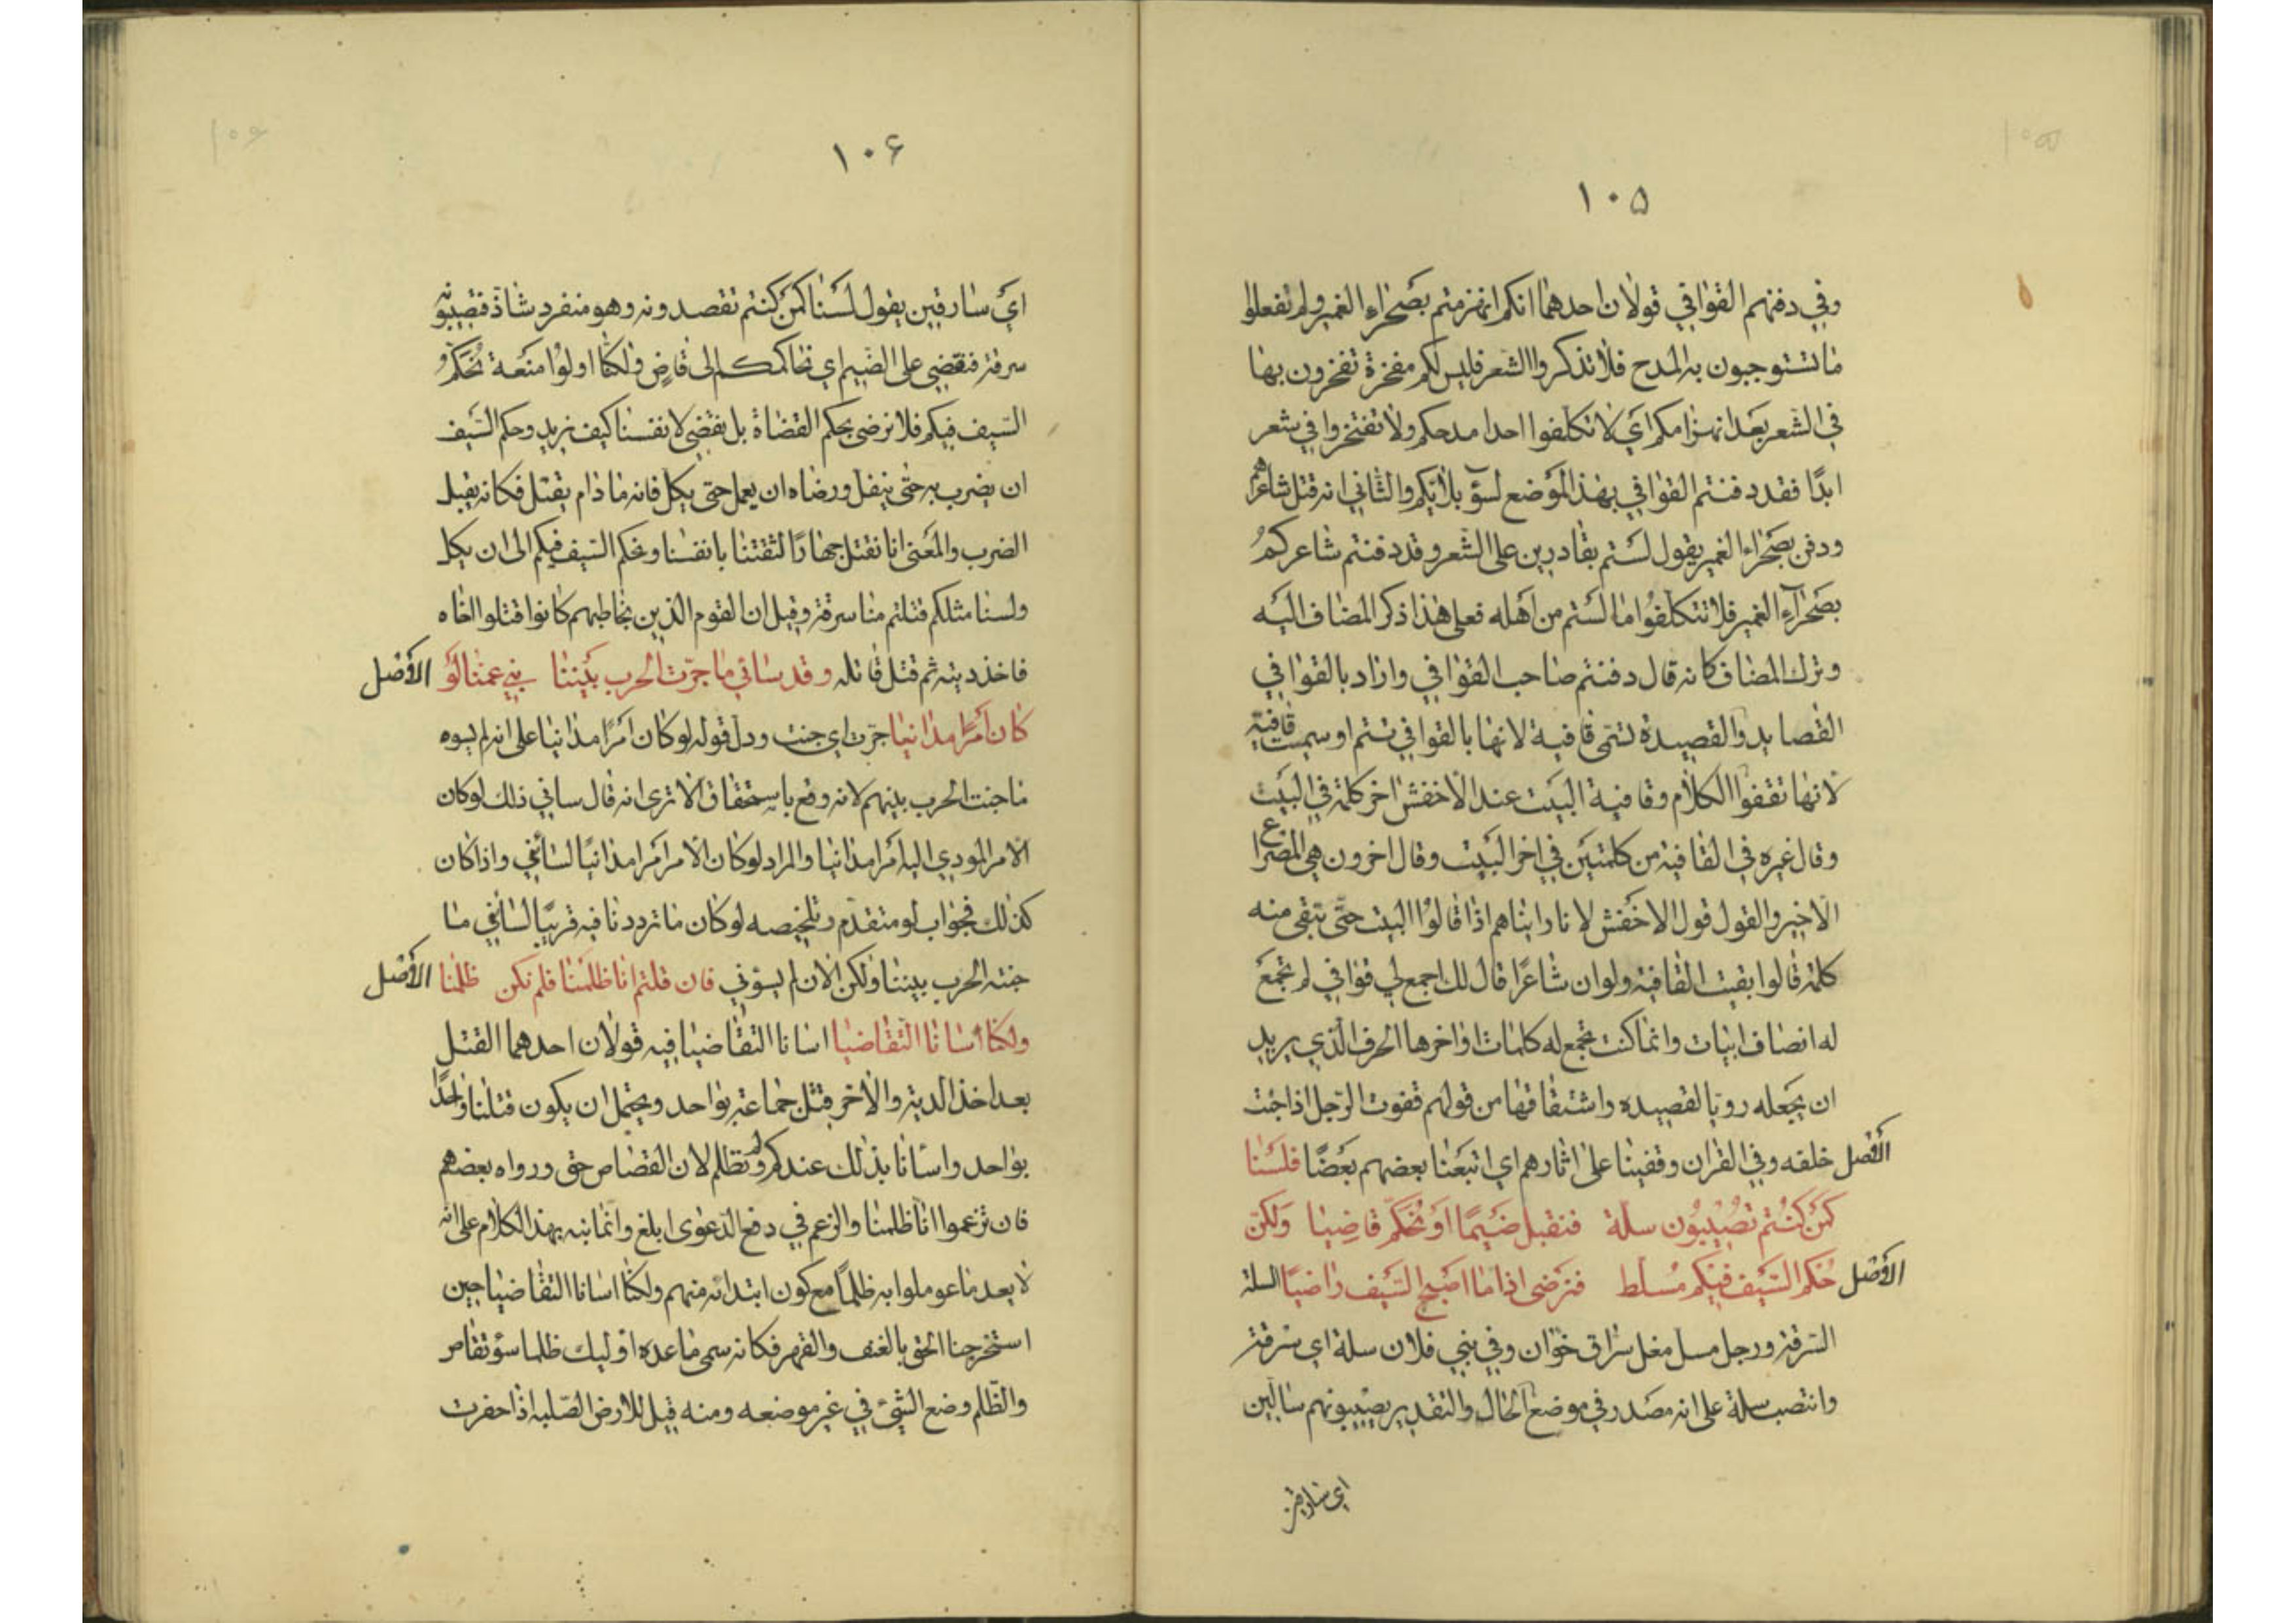 ١٠٥
وفي دفنهم القوافي قولان احدهما انكم انهزمتم بصحراء الغمير ولم تفعلوا
ما تستوجبون به المدح فلا تذكروا الشعر فليس لكم مفخرة تفخرون بها
في الشعر بعد انهزامكم اي لا تكلفوا احدا مدحكم ولا تفتخروا في شعر
ابدًا فقد دفنتم القوافي بهذا الموضع لسوٓ بلائكم والثاني انه قتل شاعرهم
ودفن بصحراء الغمير يقول لستم بقادرين على الشعر وقد دفنتم شاعركم
بصحرآء الغمير فلا تتكلفوا ما لستم من اهله فعلى هذا ذكر المضاف اليه
وترك المضاف كانه قال دفنتم صاحب القوافي واراد بالقوافي
القصايد والقصيدة تسمى قافية لانها بالقوافي تتم او سميت قافية
لانها تقفوا الكلام وقافية البيت عند الاخفش اخر كلمة في البيت
وقال غيره في القافية من كلمتين في اخر البيت وقال اخرون هي المصراع
الاخير والقول قول الاخفش لانا رايناهم اذا قالوا البيت حتى تبقى منه
كلمة قالوا بقيت القافية ولو ان شاعرًا قال لك اجمع لي قوافي لم تجمع
له انصاف ابيات وانما كنت تجمع له كلمات اواخرها الحرف الذي يريد
ان يجعله رويا لقصيده واشتقاقها من قولهم قفوت الرجل اذا جئت
الأفضل خلفه وفي القران وقفينا على اثارهم اي اتبعنا بعضهم بعضًا فلسنا
كمن كنتم تصيبون سلة فنقبل ضيمًا او نحكم قاضيا ولكن
الأفضل حكم السيف فيكم مسلط فنرضى اذا ما اصبح السيف راضيًا السلة
السرقة ورجل مسل مغل سراق خوّان وفي بني فلان سلة اي سرقة
وانتصب سلة على انه مصدر في موضع الحال والتقدير يصيبونهم سالين
اي سارقين
١٠٦
اي سارقين يقول لسنا كمن كنتم تقصدونه وهو منفرد شاذ فتصيبونه
سرقة فنقضي على الضيم اي نحاكمكم الى قاض ولكنا اولوا منعة نحكم
السيف فيكم فلا نرضى بحكم القضاة بل نقضي لانفسنا كيف نريد وحكم السيف
ان يضرب به حتى ينفل ورضاه ان يعمل حتى يكل فانه ما دام يقتل فكانه يقبل
الضرب والمعنى انا نقتل جهارًا لثقتنا بانفسنا ونحكم السيف فيكم الى ان يكل
ولسنا مثلكم قتلتم منا سرقة وقيل ان القوم الذين يخاطبهم كانوا قتلوا اخاه
فاخذ ديته ثم قتل قاتله وقد ساني ما جرّت الحرب بيننا بني عمنا لو الأفضل
كان أمرًا مدانيا جرّت اي جنت ودل قوله لو كان امرًا مدانيا على انه لم يسوه
ما جنت الحرب بينهم لانه وقع باستحقاق الا ترى انه قال ساني ذلك لو كان
الامر المودي اليه أمرا مدانيا والمراد لو كان الامر أمرا مدانيًا لسأني واذا كان
كذلك فجواب لو متقدّم وتلخيصه لو كان ما ترددنا فيه قريبًا لسأني ما
جنته الحرب بيننا ولكن الان لم يسؤني فان قلتم انا ظلمنا فلم نكن ظلمنا الأفضل
ولكنا اسانا التقاضيا اسانا التقاضيا فيه قولان احدهما القتل
بعد اخذ الدية والاخر قتل جماعة بواحد ويحتمل ان يكون قتلنا واحدًا
بواحد واسأنا بذلك عندكم ولم نظلم لان القصاص حق ورواه بعضهم
فان تزعموا انا ظلمنا والزعم في دفع الدعوى ابلغ وانما نبه بهذا الكلام على انه
لا يعد ما عوملوا به ظلمًا مع كون ابتدائه منهم ولكنا اسانا التقاضيا حين
استخرجنا الحق بالعنف والقهر فكانه سمى ما عده اوليك ظلما سؤ تقاص
والظلم وضع الشيء في غير موضعه ومنه قيل للارض الصلبه اذا حفرت